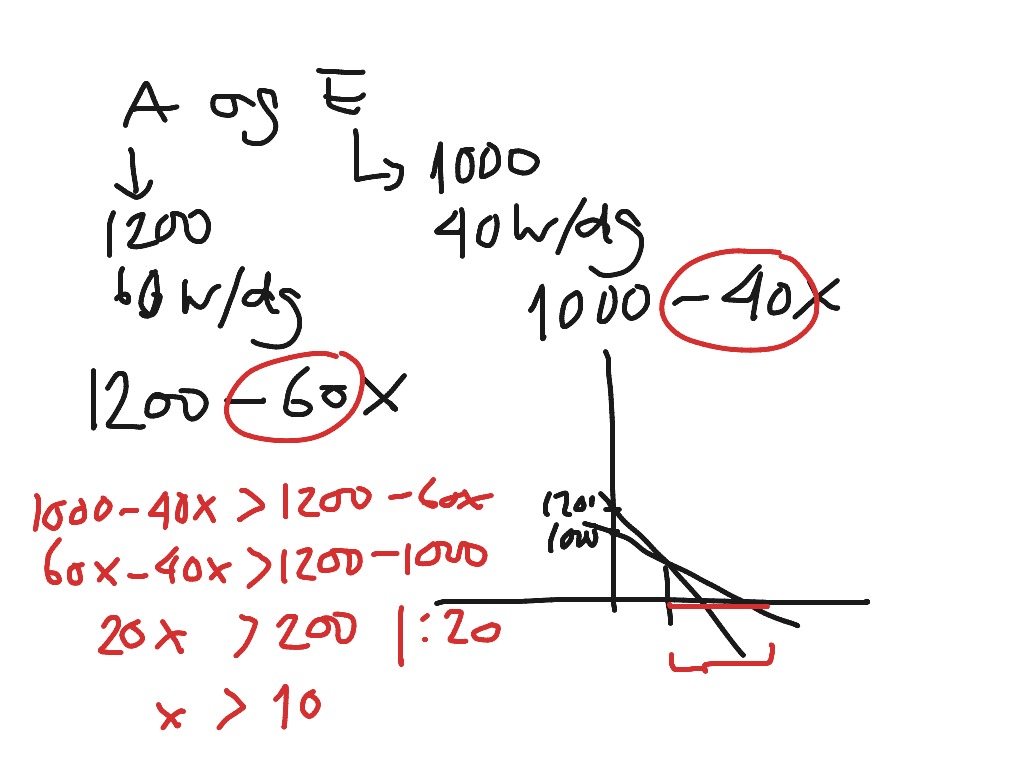 A og E
1000
1200
40 kr/dg
60 kr/dg
1000 - 40x
1200 - 60x
1000 - 40x > 1200 - 60x
60x - 40x > 1200 - 1000
20x > 200 | : 20
x > 10
1200
1000